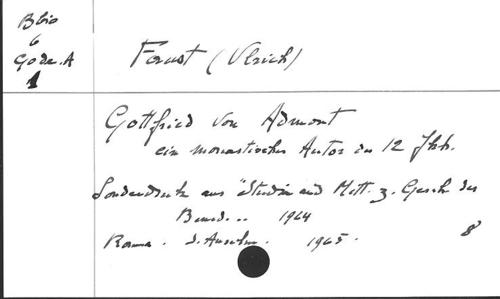 Bbio
6
Gode.A
1
Faust (Ulrich)
Gottfried von Admont
ein monastischer Autor des 12 Jhh.
Sonderdruck aus "Studien und Mitt. z. Gesch des
Bened... 1964
Roma. S. Anselm. 1965. 8°